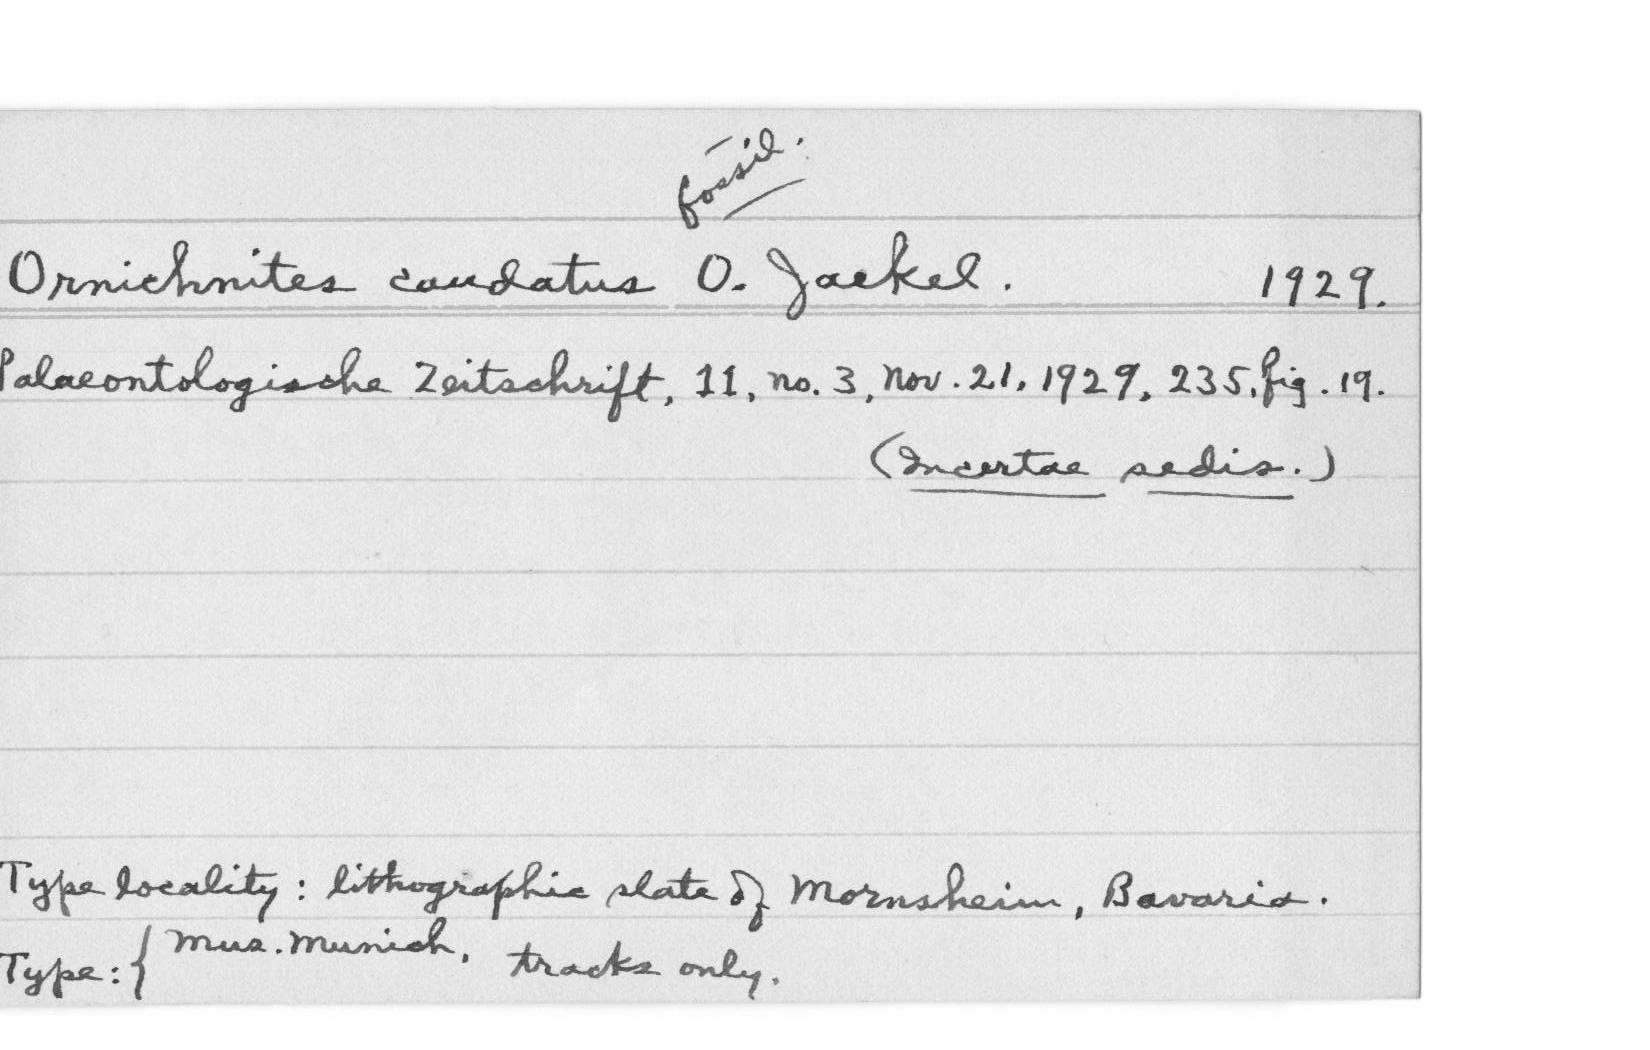 fossil.
Ornichnites caudatus O. Jaekel. 1929.
Palaeontologische Zeitschrift, 11, no. 3, Nov. 21, 1929, 235, fig. 19.
(Incertae sedis.)
Type locality: lithographic slate of Mornsheim, Bavaria.
Type: { Mus. Munich, tracks only.